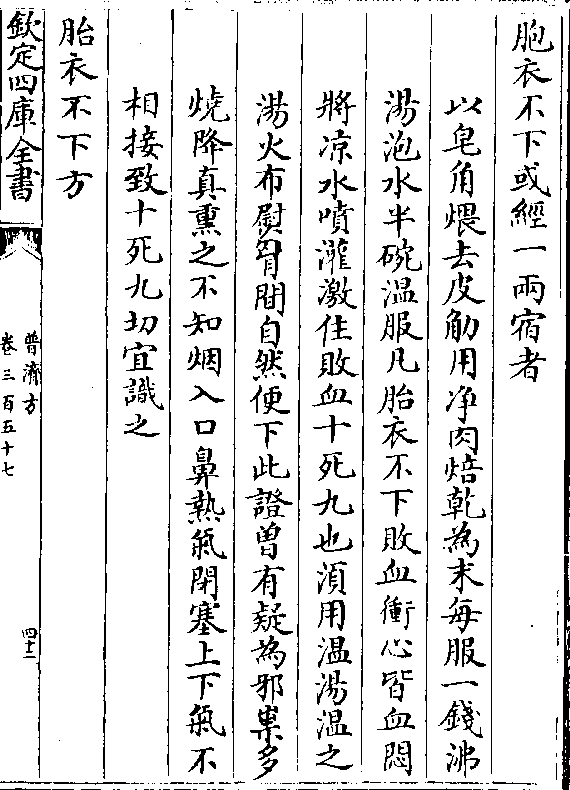 胞衣不下或經一兩宿者
以皂角煨去皮觔用净肉焙乾為末每服一錢沸
湯泡水半碗温服凡胎衣不下敗血衝心皆血悶
將凉水噴灌激住敗血十死九也湏用温湯温之
湯火布熨胷間自然便下此證曽有疑為邪祟多
燒降真熏之不知烟入口鼻熱氣閉塞上下氣不
相接致十死九切宜識之
胎衣不下方
欽定四庫全書
普濟方
卷三百五十七
四十二